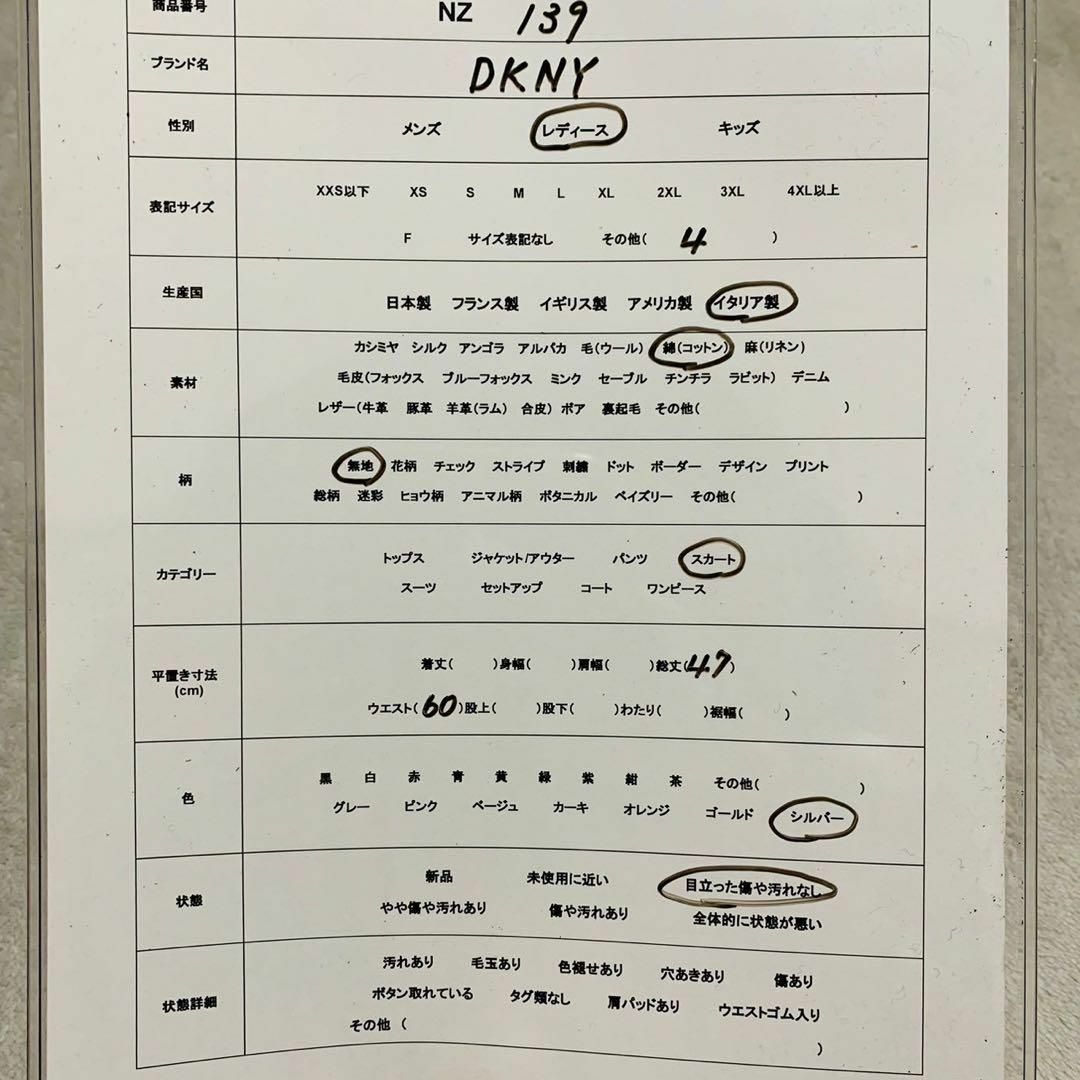 商品番号 NZ 139
ブランド名 DKNY
性別 メンズ レディース キッズ
表記サイズ XXS以下 XS S M L XL 2XL 3XL 4XL以上
F サイズ表記なし その他( 4 )
生産国 日本製 フランス製 イギリス製 アメリカ製 イタリア製
素材 カシミヤ シルク アンゴラ アルパカ 毛(ウール) 綿(コットン) 麻(リネン)
毛皮(フォックス ブルーフォックス ミンク セーブル チンチラ ラビット) デニム
レザー(牛革 豚革 羊革(ラム) 合皮) ボア 裏起毛 その他( )
柄 無地 花柄 チェック ストライプ 刺繍 ドット ボーダー デザイン プリント
総柄 迷彩 ヒョウ柄 アニマル柄 ボタニカル ペイズリー その他( )
カテゴリー トップス ジャケット/アウター パンツ スカート
スーツ セットアップ コート ワンピース
平置き寸法
(cm)
着丈( )身幅( )肩幅( )総丈(47)
ウエスト(60)股上( )股下( )わたり( )裾幅( )
色 黒 白 赤 青 黄 緑 紫 紺 茶 その他( )
グレー ピンク ベージュ カーキ オレンジ ゴールド シルバー
状態 新品 未使用に近い 目立った傷や汚れなし
やや傷や汚れあり 傷や汚れあり 全体的に状態が悪い
状態詳細 汚れあり 毛玉あり 色褪せあり 穴あきあり 傷あり
ボタン取れている タグ類なし 肩パッドあり ウエストゴム入り
その他 ( )